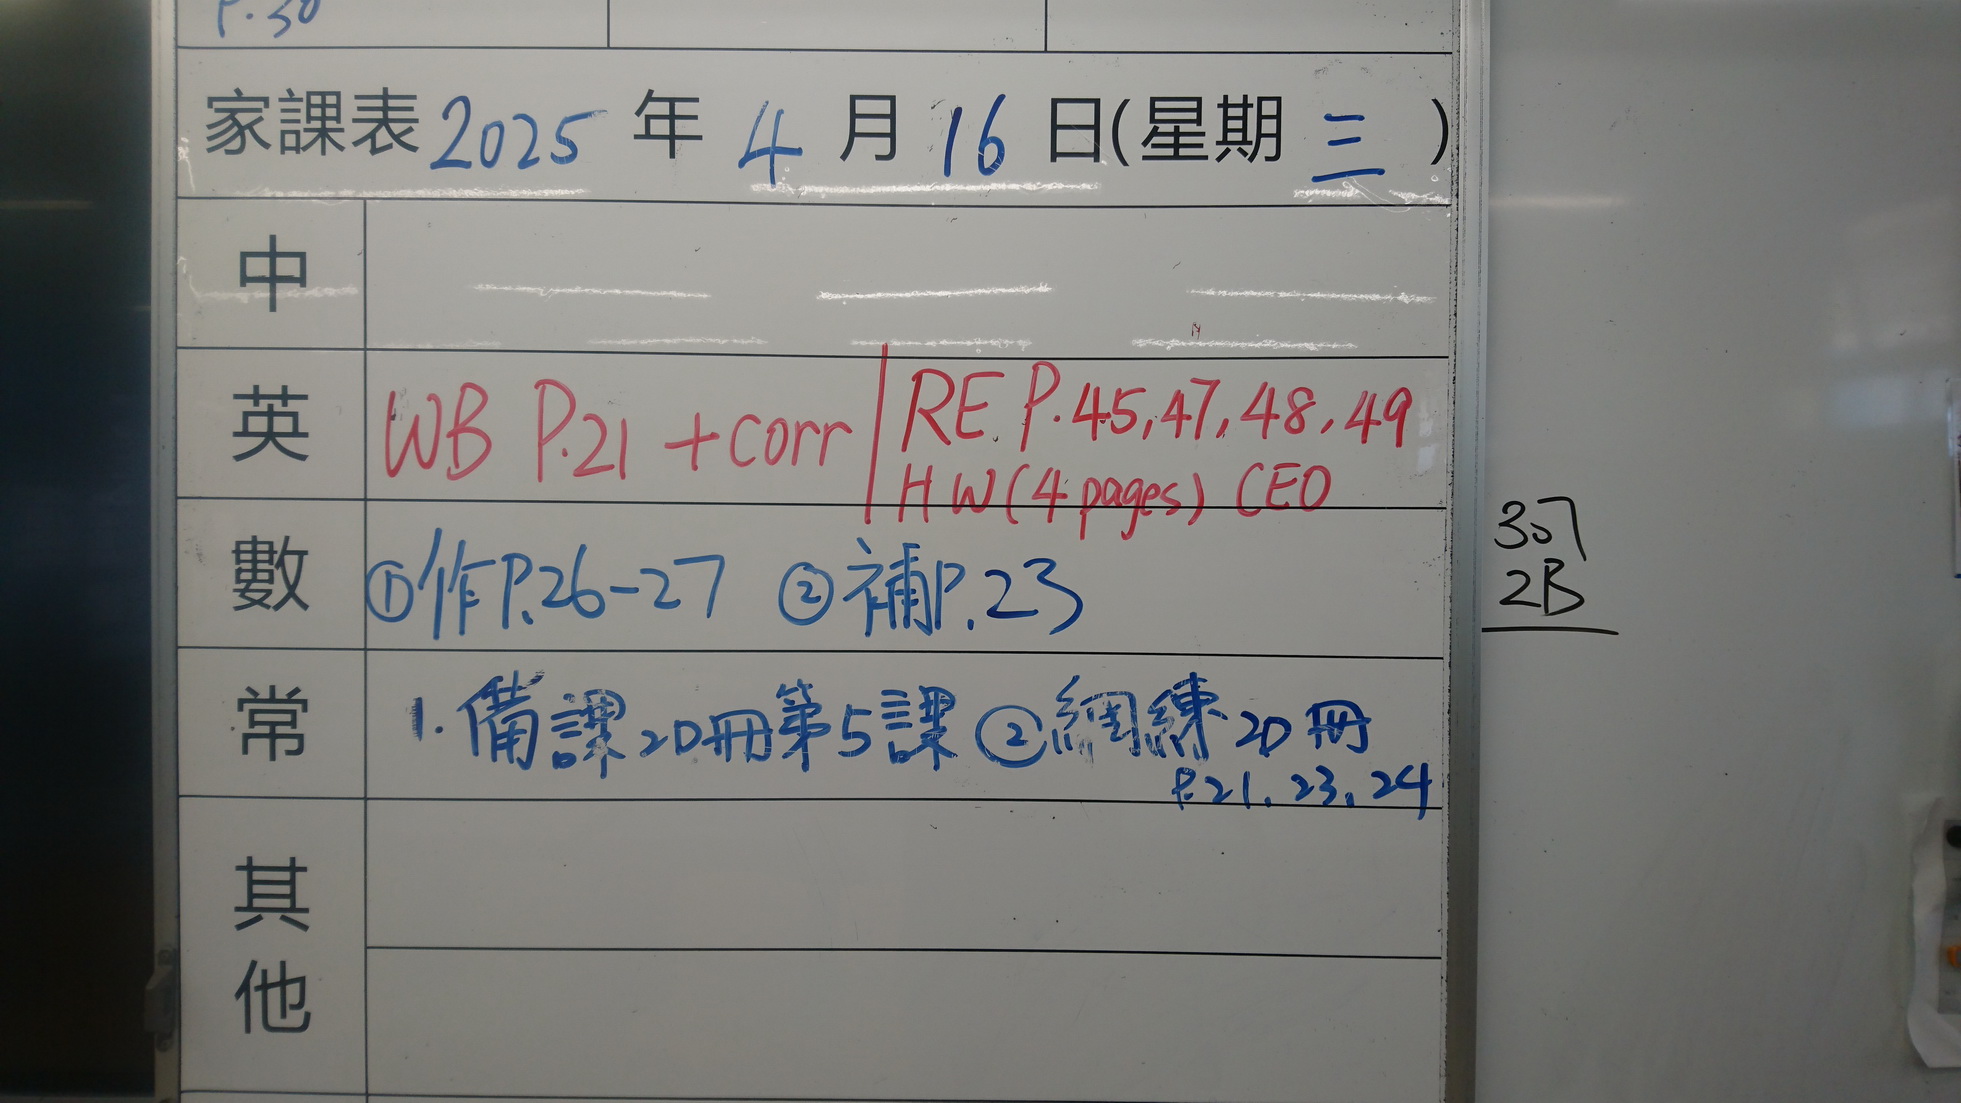 P.30
家課表 2025 年 4 月 16 日(星期 三 )
中
英 WB P.21 +corr RE P.45,47,48,49
HW(4 pages) CEO
數 ①作P.26-27 ②補P.23
常 1.備課2D冊第5課 ②網練2D冊
P.21,23,24
其他
307
2B